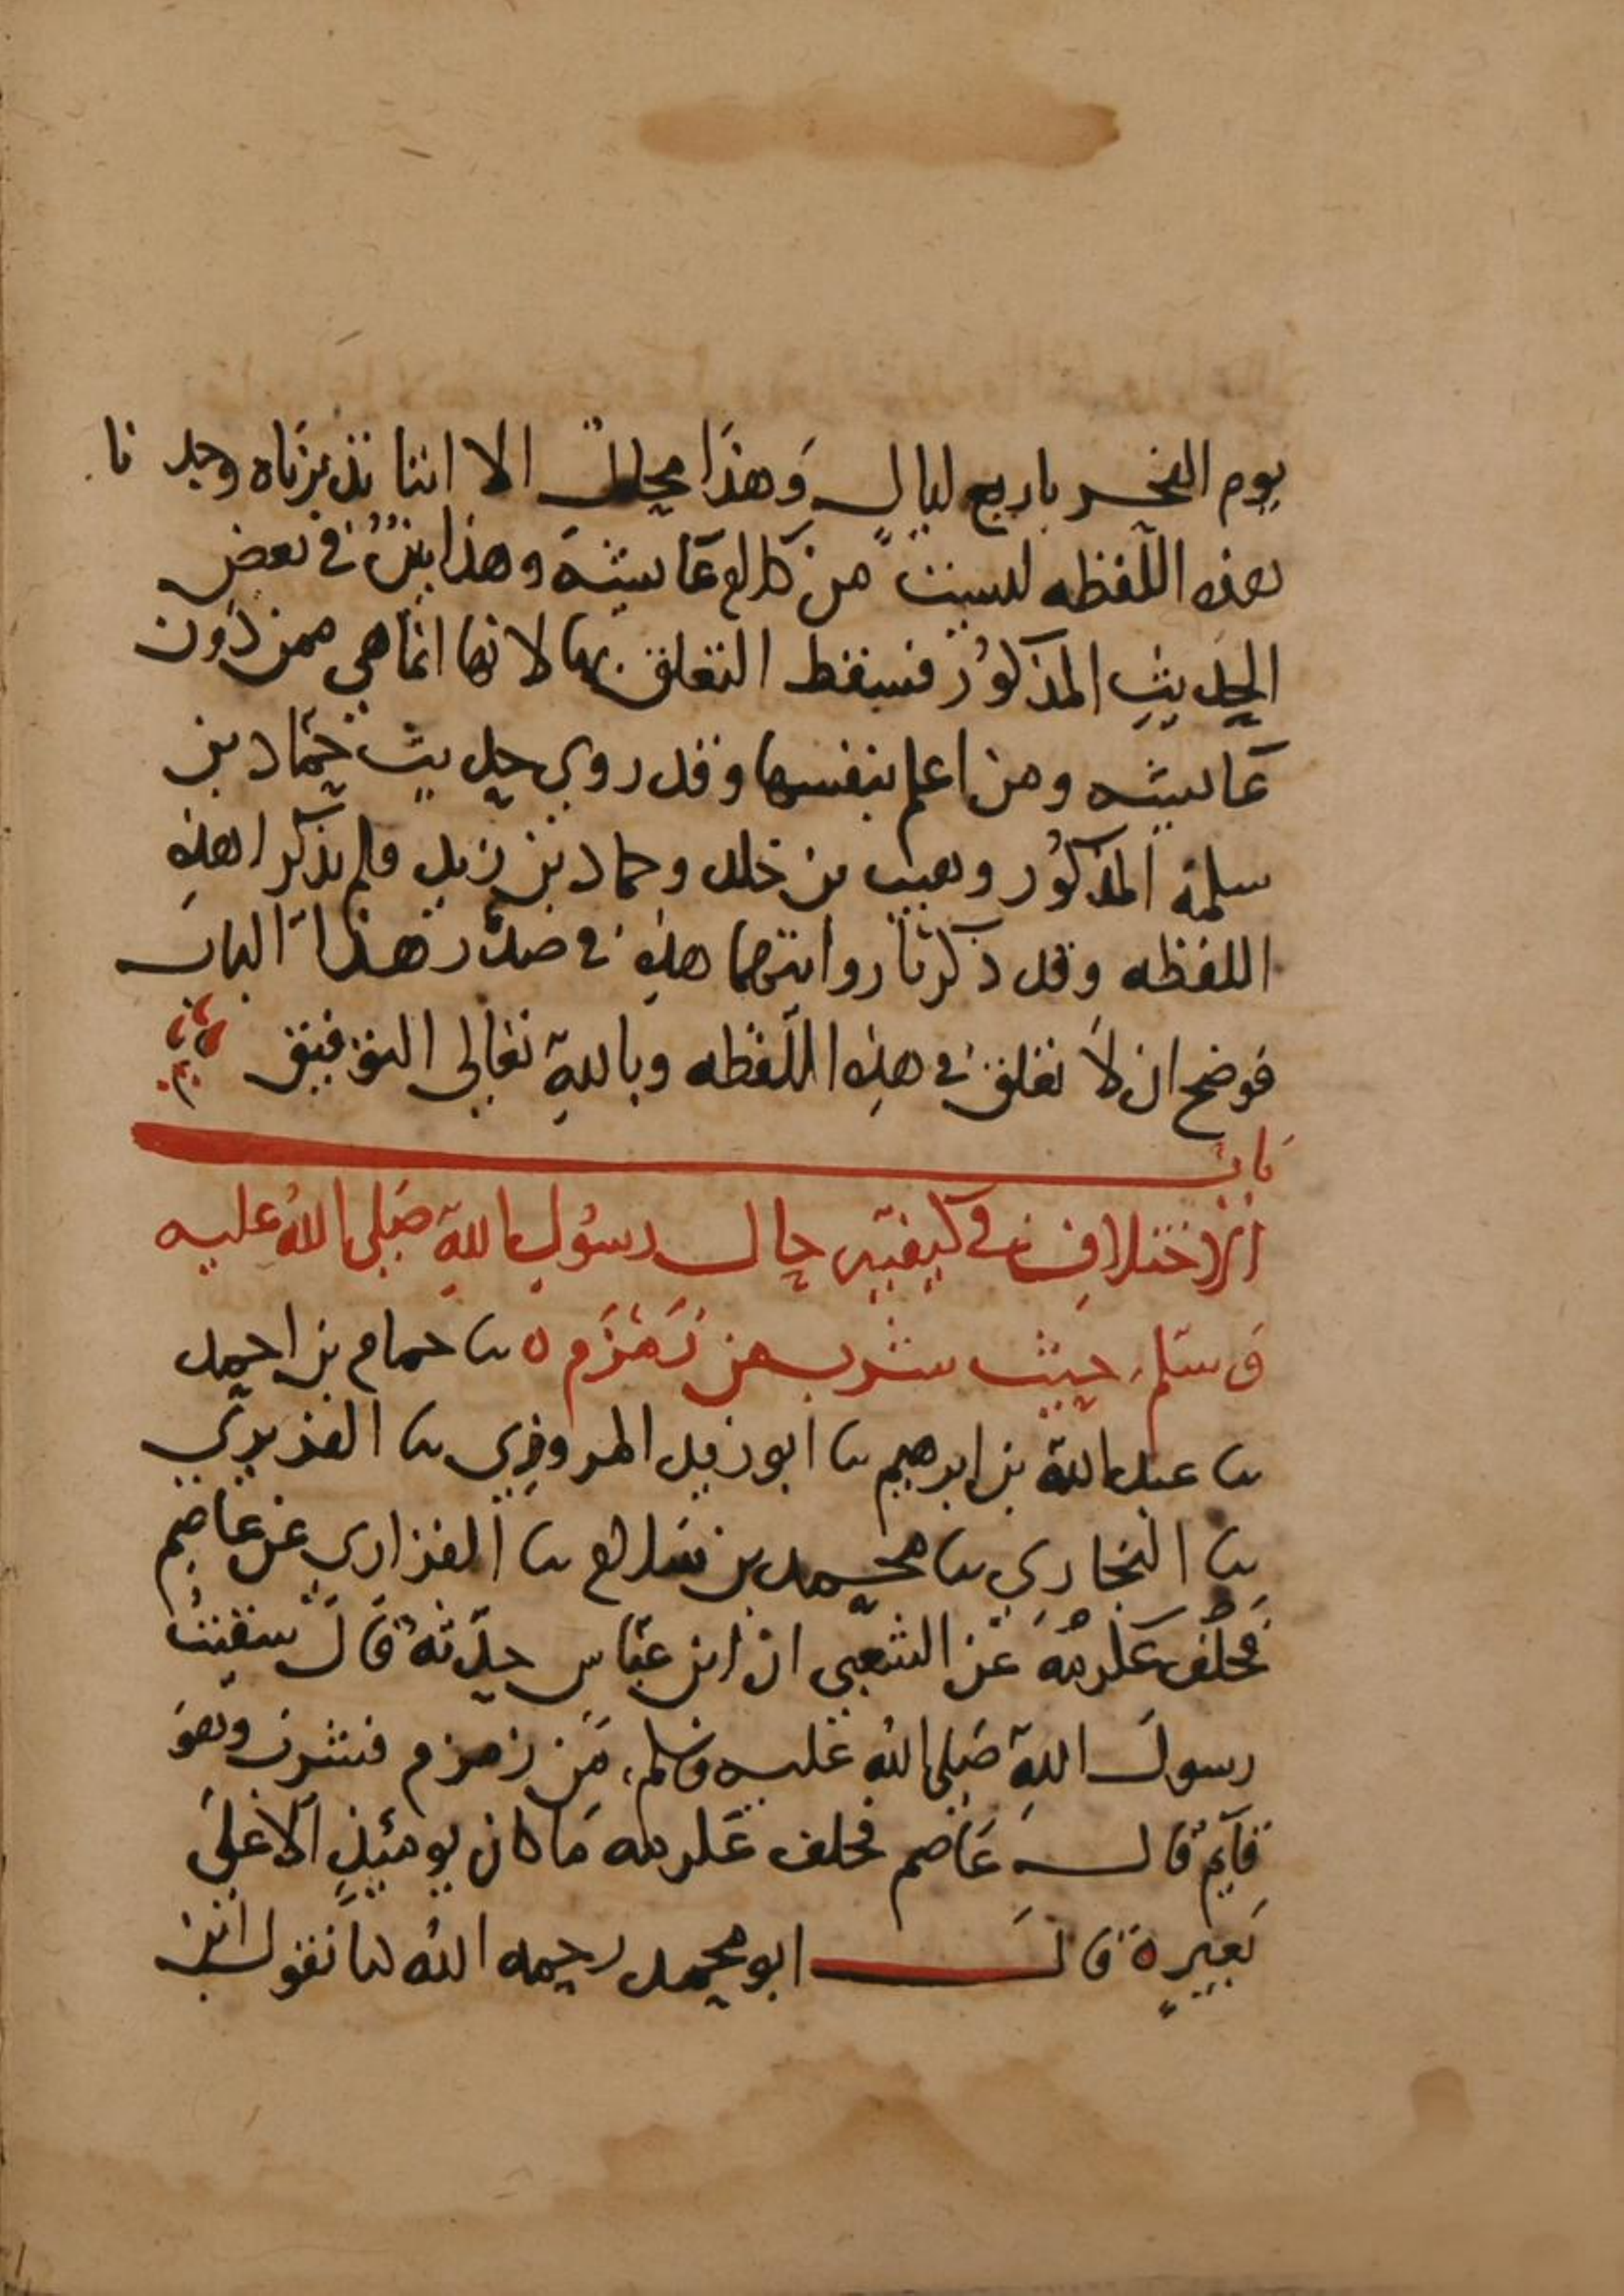 يوم النحر باربع ليالٍ وَهذَا محال الا اننا تدبرناه وجدنا
هذه اللّفظه ليست من كلام عَايشة وهذا بيّنٌ في بعض
الحديثِ المذكوُر فسقط التعلق بها لانها انما هي ممن دُون
عَايشه ومن اعلم بنفسها وقد روي حديث حمّاد بن
سلمة المذكوُر وهيب بن خلد وحماد بن زيد ولم يذكرا هذهِ
اللفظه وقد ذكرنا روايتهما هذهِ في صَدْر هذا الباب
فوضح ان لَا تعلق في هذِه اللّفظه وباللهِ تعَالى التوفيق
بَابٌ
الاختلافِ في كيفيّه حال رسُولِ اللهِ صَلى اللهُ عليه
وَسَلم حيثُ شرب من زَمْزَم ٥ نا حمام بن احمد
نا عبد الله بن ابرهيم نا ابو زيد المروزِي نا الفربري
نا البخَاري نا محمد بن سَلام نا الفزاري عَن عَاصِم
فحلَف عكرمَة عَن الشعبِي ان ابن عبّاس حدّثهُ قَالَ سَقيتُ
رسولَ اللهِ صَلى الله عليه وسلم مِن زمزم فشربَ وهوَ
قَآيِمٌ قال عَاصم فحلف عكرمه مَا كان يومَئِذٍ اَلا علَى
بَعِيرٍ ٥ قَالَ ابو محمد رحمه الله نا نقول ابن